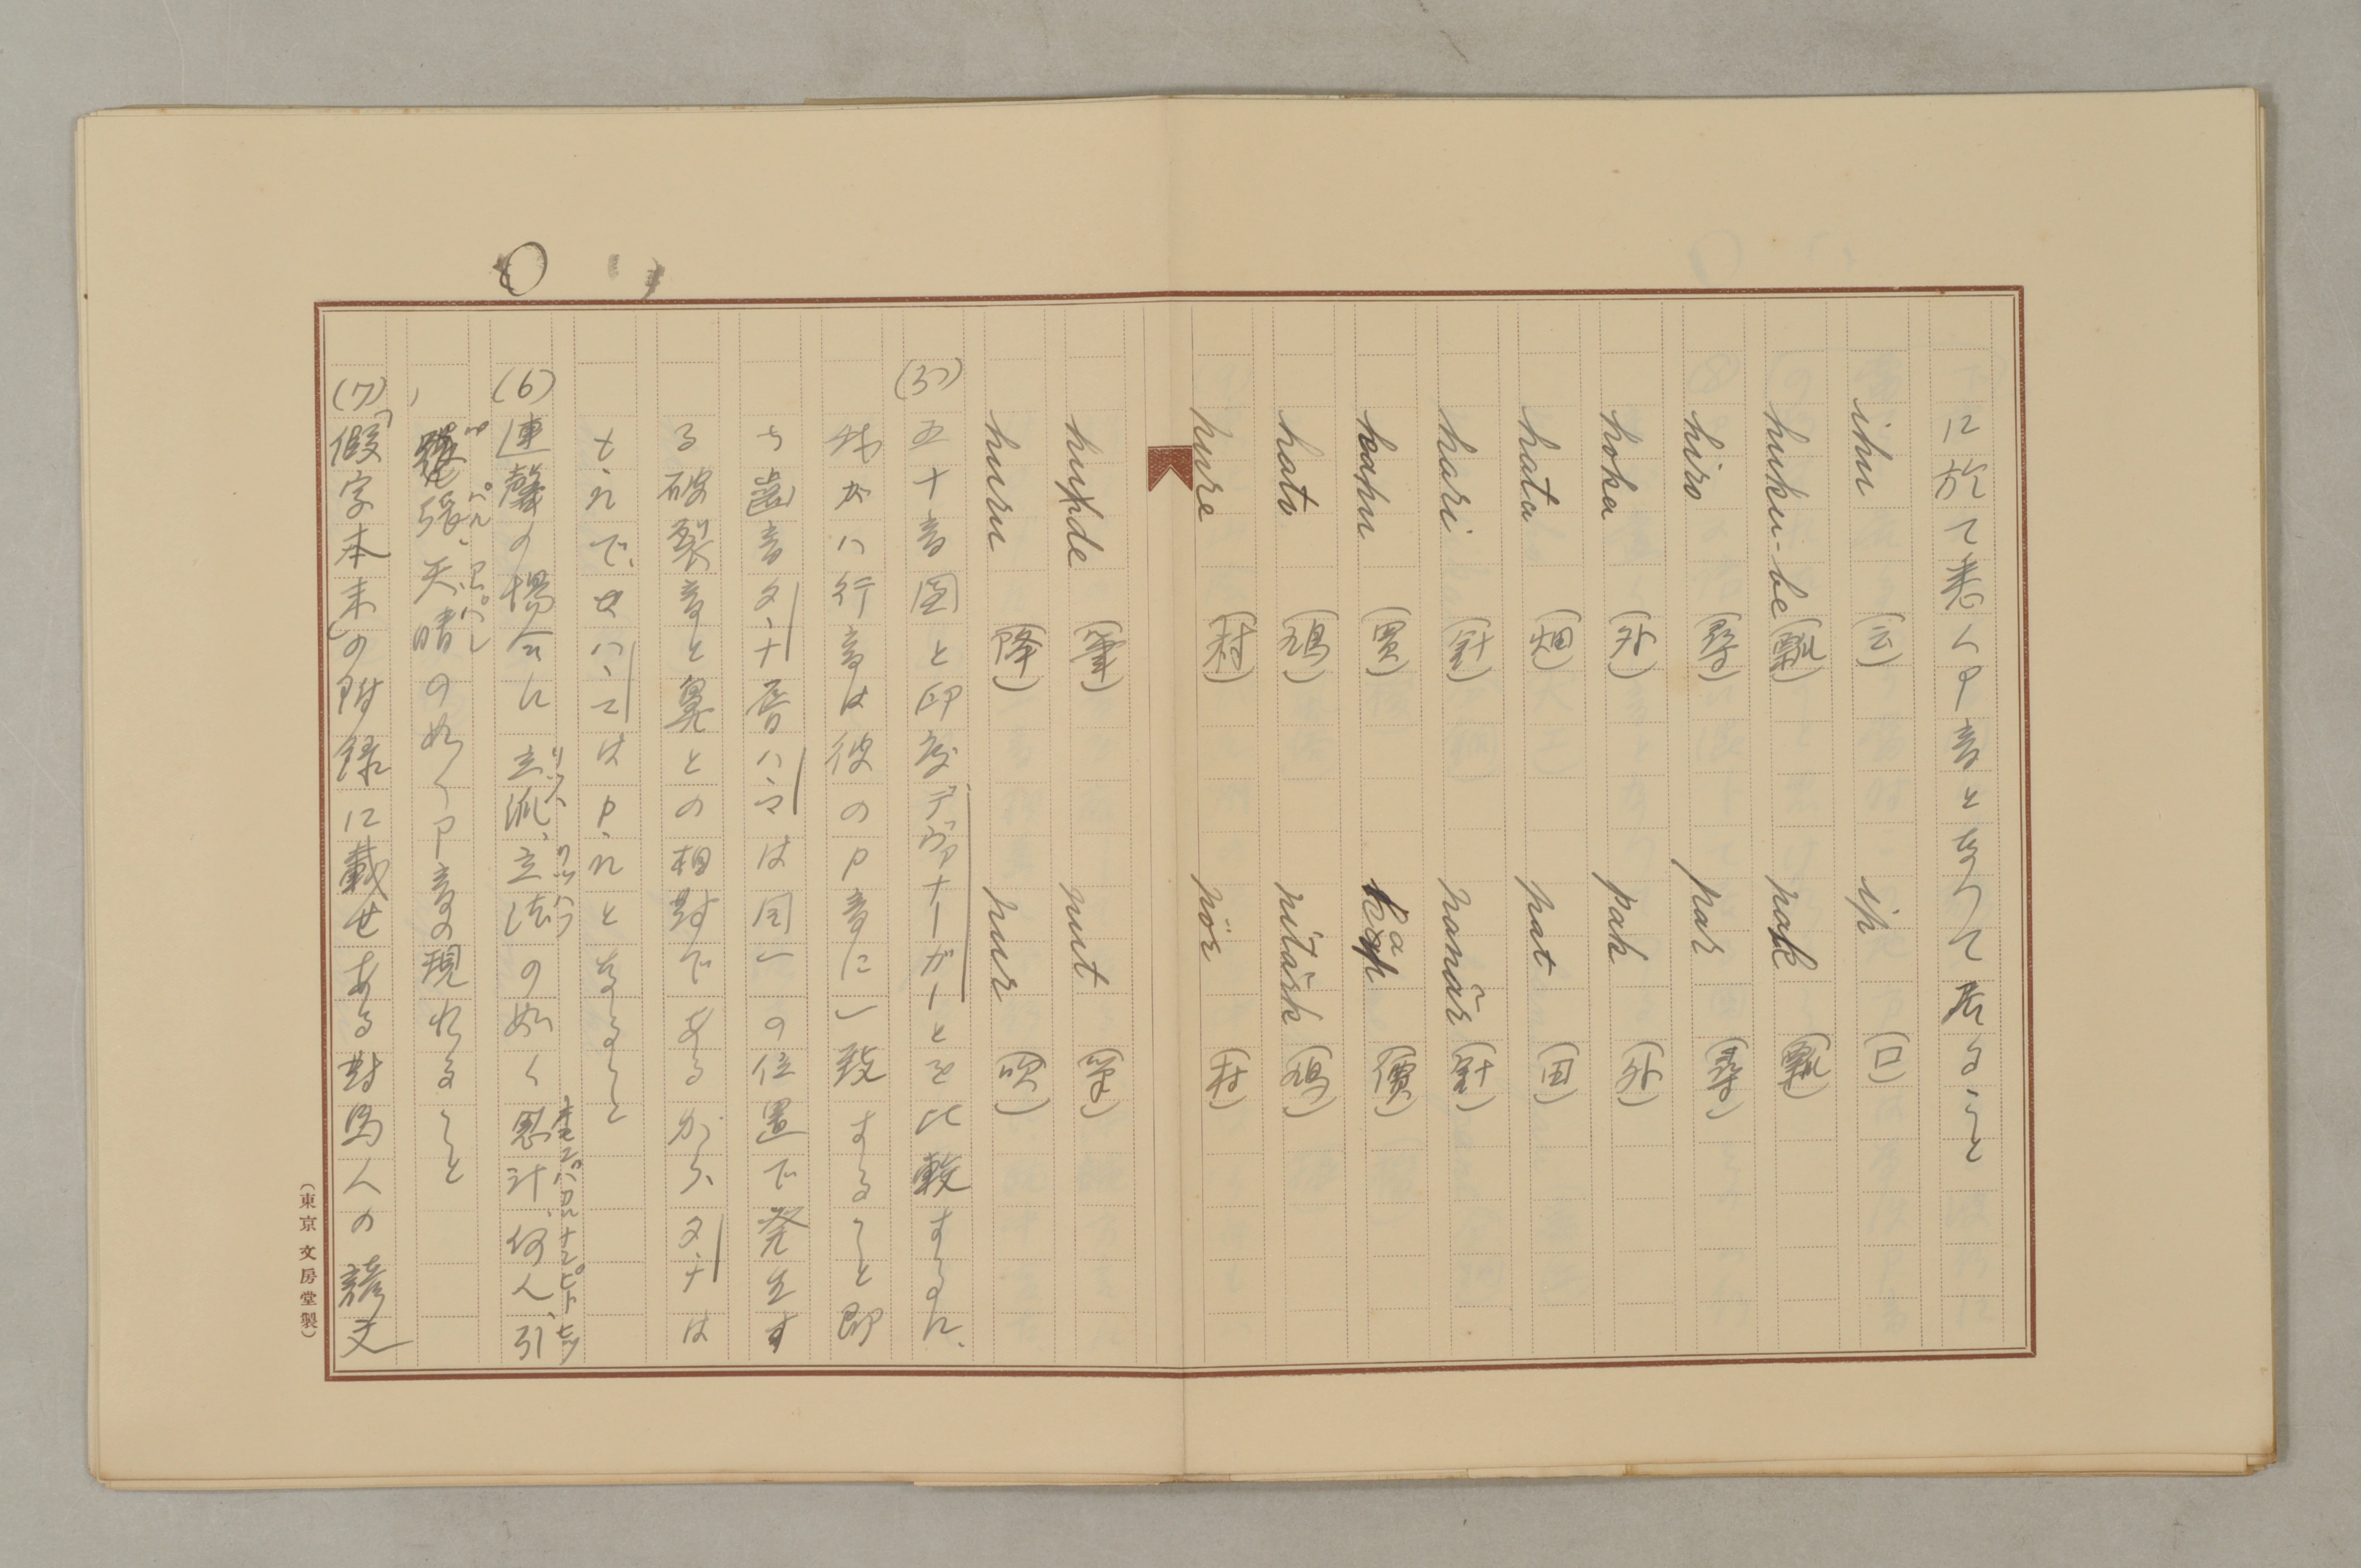 に於て悉くP音となつて居ること
ihu (云) ip (口)
huku-be (瓢) pak (瓢)
hiro (尋) par (尋)
hoka (外) pak (外)
hata (畑) pat (田)
hari (針) panăr (針)
kahu (買) kap (價)
hato (鳩) pitărk (鳩)
hure (村) pör (村)
hude (筆) put (筆)
huru (降) pur (吹)
(5) 五十音図と印度デヴァナーガーとを比較するに、
我がハ行音は彼のP音に一致すること即
ち歯音タ、ナ唇ハ、マは同一の位置で発生す
る破裂音と鼻との相對であるから、タ、ナは
t、nで、ハ、マはp、mとなること
(6) 連聲の場合に立派、立法の如く恩計、何人、引
リッパ リッパフ オモンパカル ナンピト ヒッ
張、天晴の如くP音の現れること
パル アッパレ
(7)「假字本末」の附録に載せある對馬人の諺文
(東京 文房堂製)